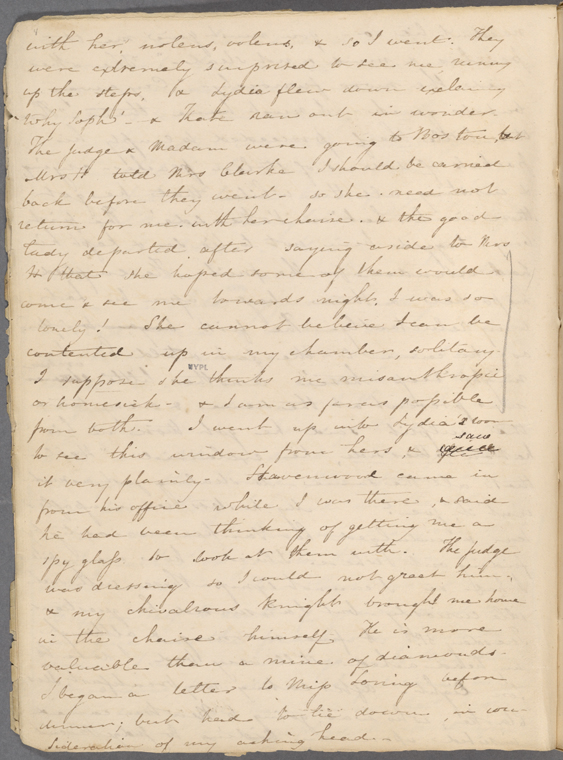 with her, nolens, volens, & so I went. They
were extremely surprised to see me running
up the steps, & Lydia flew down exclaiming
Why Soph! - & Kate ran out in wonder.
The Judge & Madam were going to Boston, but
Mrs H told Mrs Clarke I should be carried
back before they went - so she need not
return for me with her chaise. & the good
lady departed after saying aside to Mrs
H that she hoped some of them would
come & see me towards night, I was so
lonely! She cannot believe I can be
contented up in my chamber, solitary.
I suppose she thinks me misanthropic
or homesick - & I am as far as possible
from both. I went up into Lydia's room
to see this window from hers, & saw
it very plainly - came in
from his office while I was there, & said
he had been thinking of getting me a
spy glass to look at them with. The Judge
was dressing so I could not greet him -
& my chivalrous Knight brought me home
in the chaise himself. He is more
valuable than a mine of diamonds.
I began a letter to Miss Loring before
dinner; but had to lie down, in con
sideration of my aching head.
NYPL